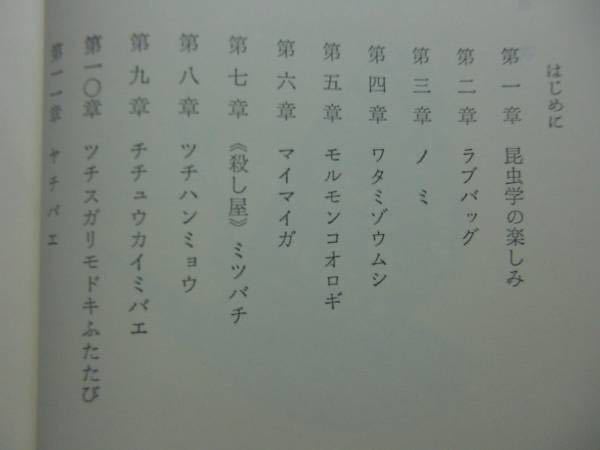 はじめに
第一章 昆虫学の楽しみ
第二章 ラブバッグ
第三章 ノミ
第四章 ワタミゾウムシ
第五章 モルモンコオロギ
第六章 マイマイガ
第七章 《殺し屋》ミツバチ
第八章 ツチハンミョウ
第九章 チチュウカイミバエ
第一〇章 ツチスガリモドキふたたび
第一一章 ヤチバエ